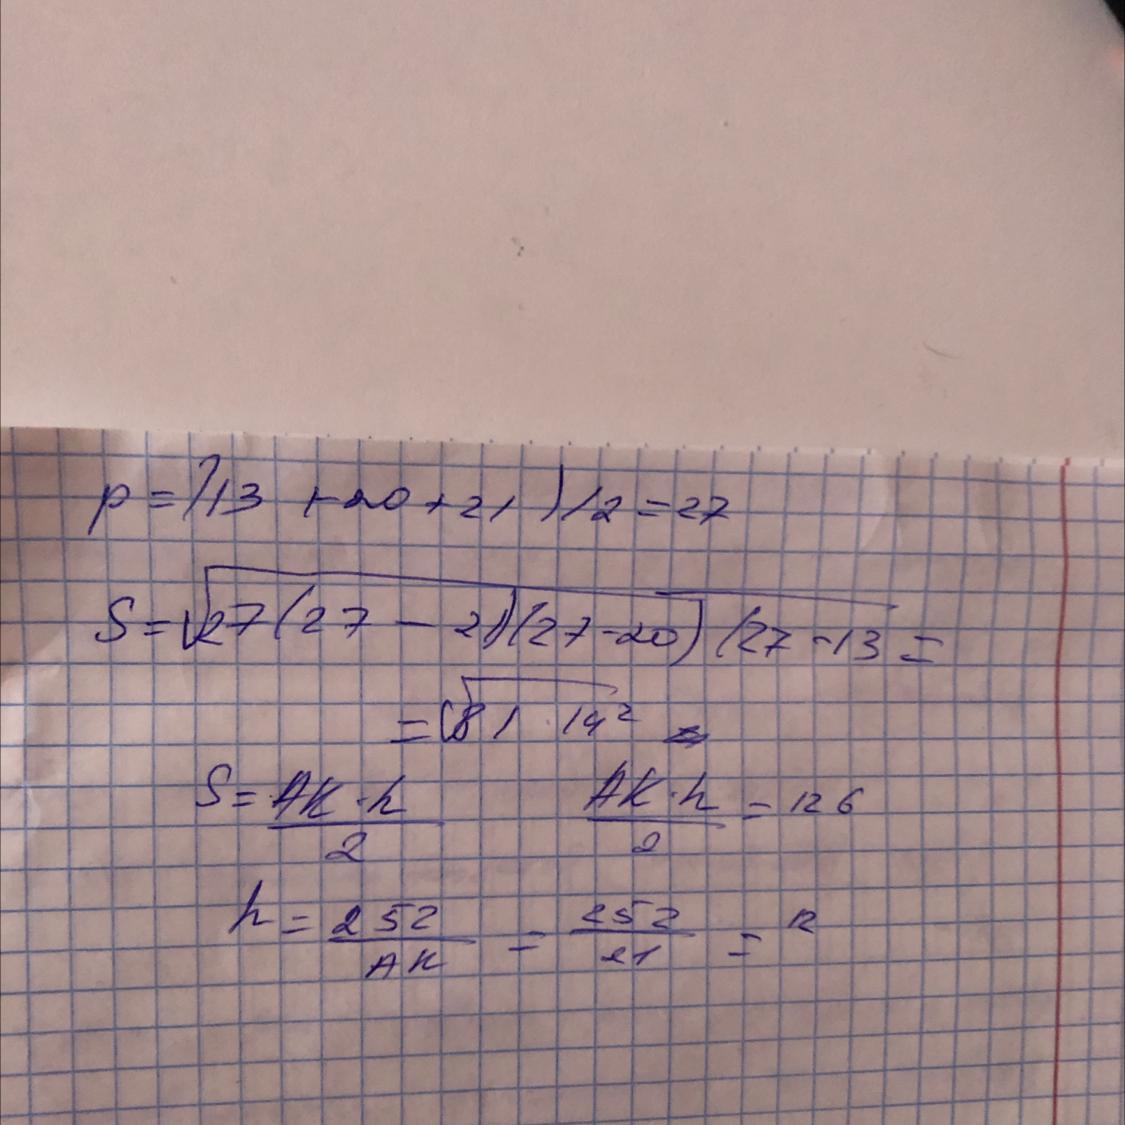 p = (13 + 20 + 21) / 2 = 27
S = √27(27 - 21)(27-20)(27-13 =
= √81 · 14²
S = AK·h / 2    AK·h / 2 = 126
h = 252 / AK = 252 / 21 = 12